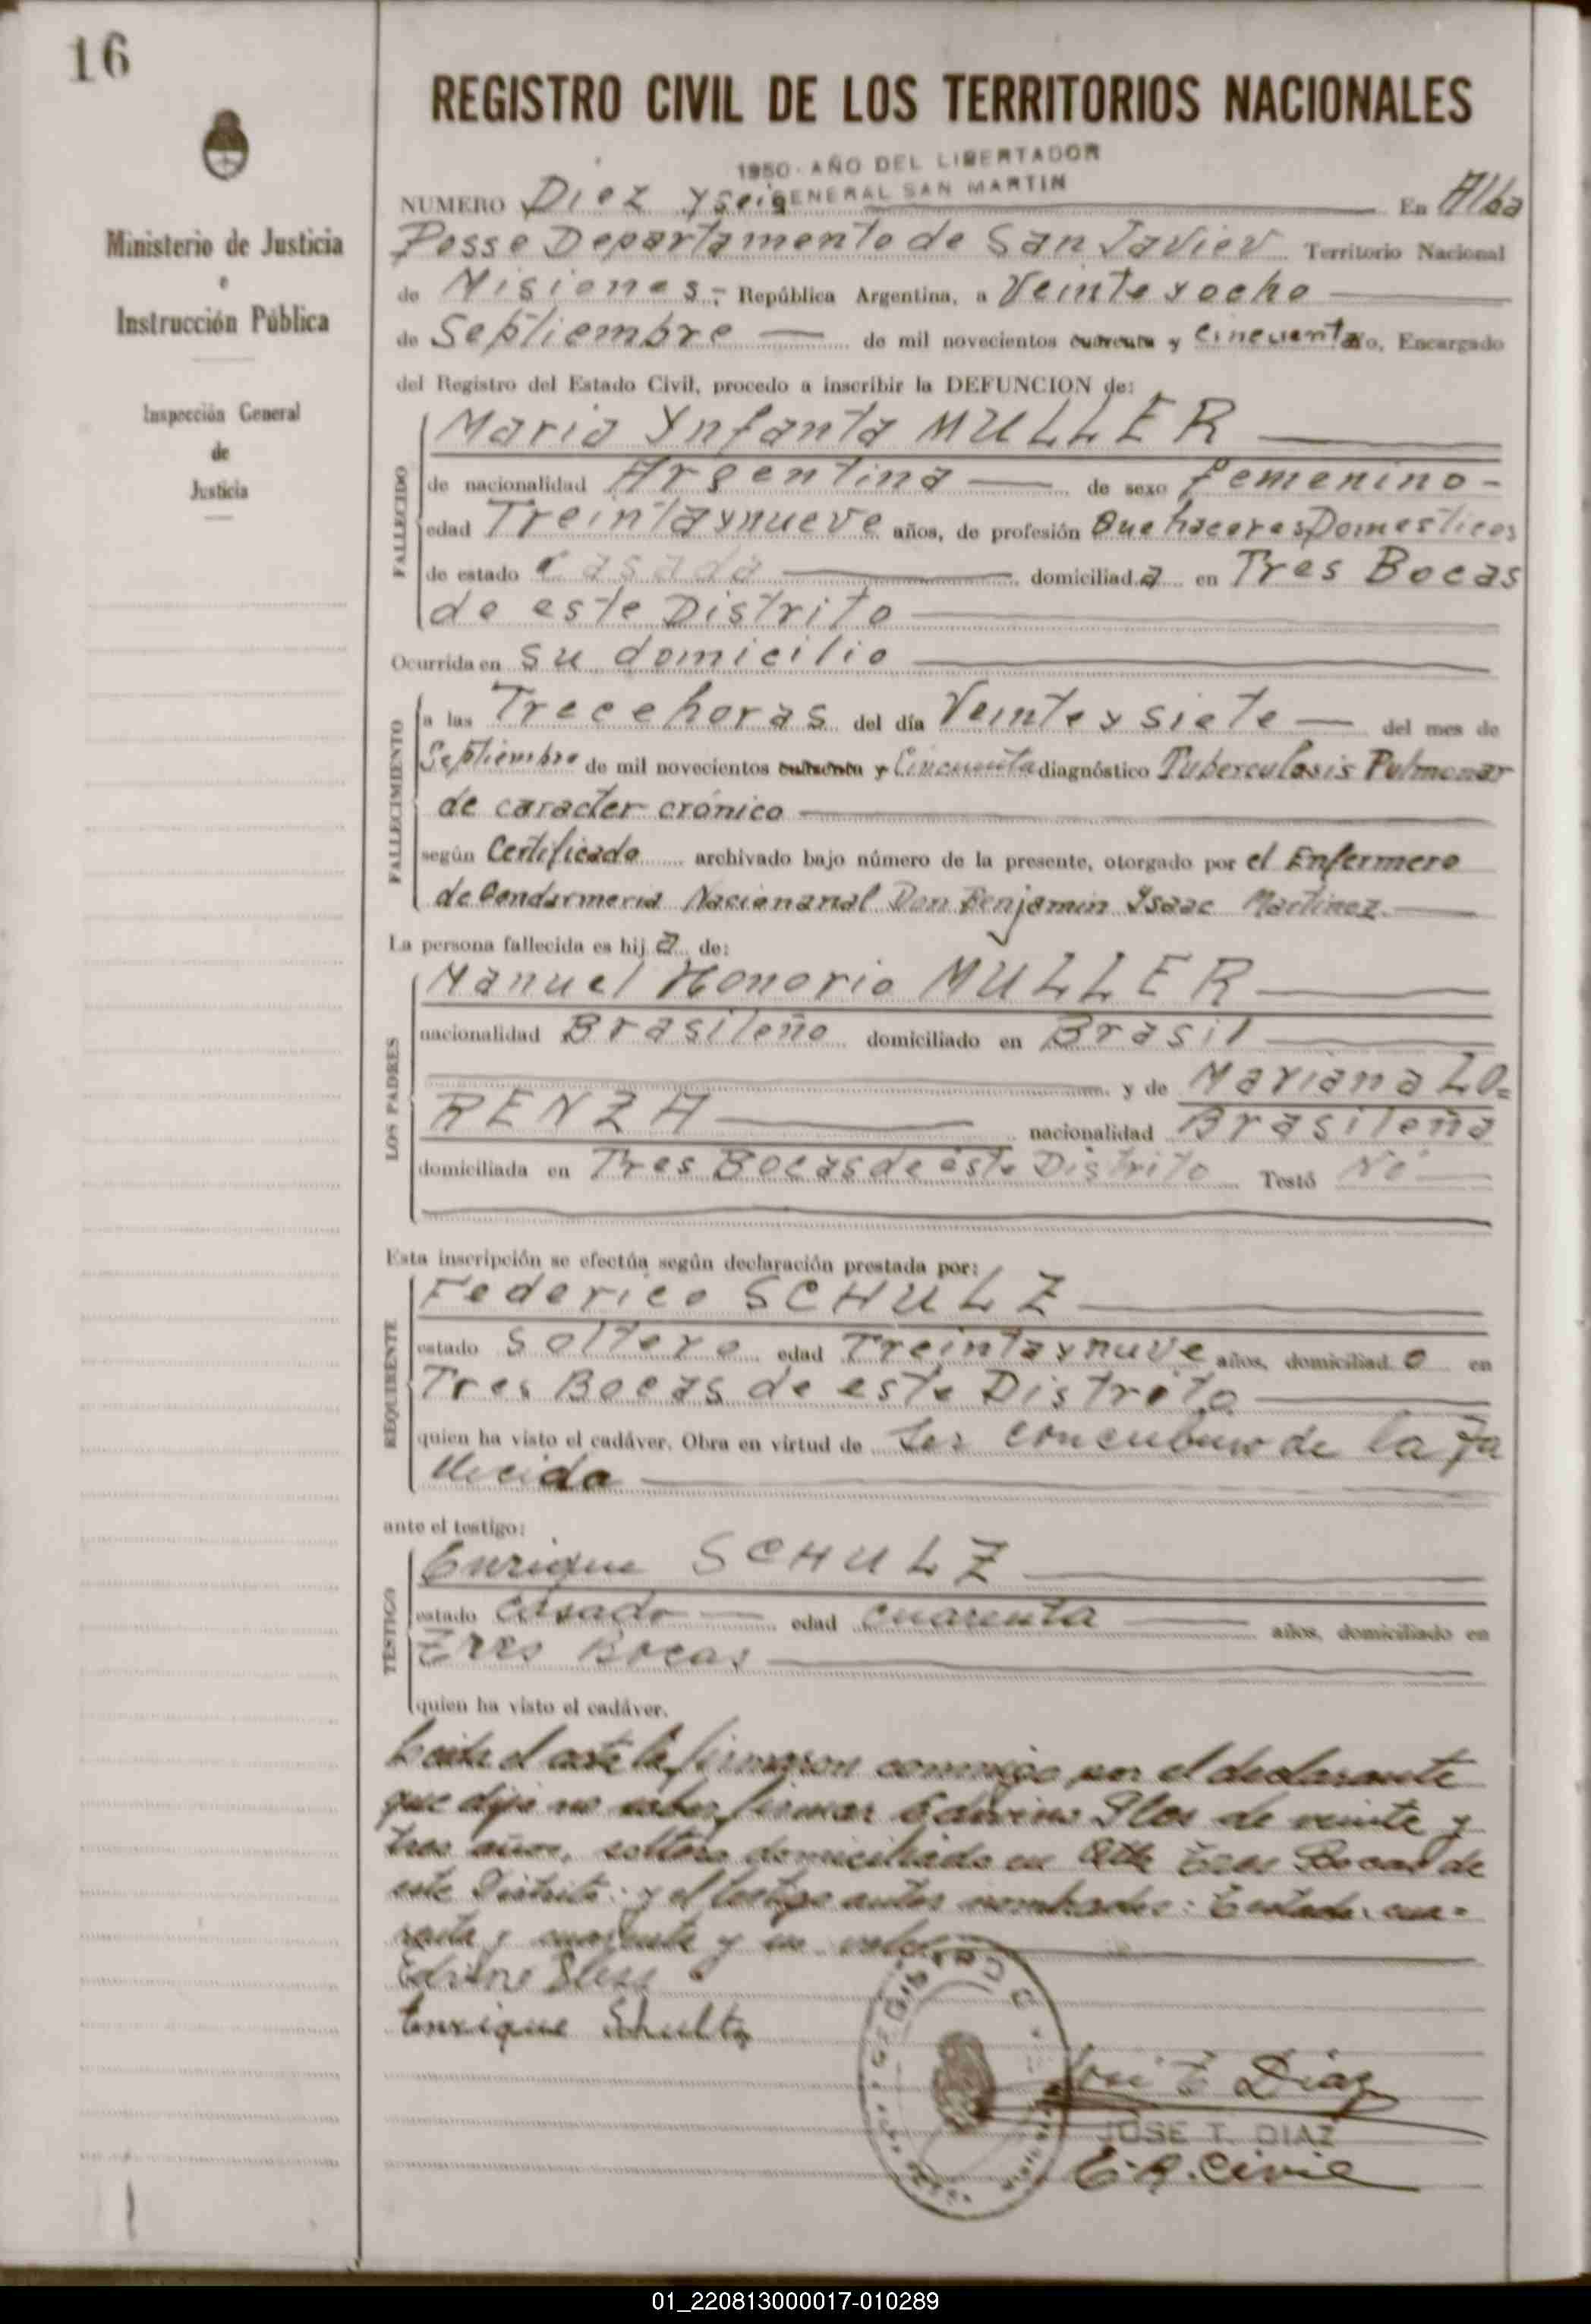 16
Ministerio de Justicia
e
Instrucción Pública
Inspección General
de
Justicia
REGISTRO CIVIL DE LOS TERRITORIOS NACIONALES
1950 - AÑO DEL LIBERTADOR
GENERAL SAN MARTIN
NUMERO Diez y seis En Alba
Posse Departamento de San Javier Territorio Nacional
de Misiones.- República Argentina, a Veinte y ocho
de Septiembre de mil novecientos cuarenta y Cincuenta yo, Encargado
del Registro del Estado Civil, procedo a inscribir la DEFUNCION de:
FALLECIDO
Maria Ynfanta MULLER
de nacionalidad Argentina de sexo femenino-
edad Treinta y nueve años, de profesión Que haceres Domesticos
de estado casada domiciliad a en Tres Bocas
de este Distrito
Ocurrida en su domicilio
FALLECIMIENTO
a las Trece horas del día Veinte y siete del mes de
Septiembre de mil novecientos cuarenta y Cincuenta diagnóstico Tuberculosis Pulmonar
de caracter crónico
según Certificado archivado bajo número de la presente, otorgado por el Enfermero
de Gendarmeria Nacionanal Don Benjamin Isaac Martinez.
La persona fallecida es hij a de:
LOS PADRES
Manuel Honorio MULLER
nacionalidad Brasileño domiciliado en Brasil
y de Mariana LO=
RENZA nacionalidad Brasileña
domiciliada en Tres Bocas de este Distrito Testó No
Esta inscripción se efectúa según declaración prestada por:
REQUIRENTE
Federico SCHULZ
estado soltero edad Treinta y nuve años, domiciliad o en
Tres Bocas de este Distrito
quien ha visto el cadáver. Obra en virtud de Ser concubino de la fa
llecida
ante el testigo:
TESTIGO
Enrique SCHULZ
estado casado edad cuarenta años, domiciliado en
Tres Bocas
quien ha visto el cadáver.
Leida el acta la firmaron conmigo por el declarante
que dijo no saber firmar Edwino de veinte y
tres años, soltero domiciliado en Tres Bocas de
este Distrito: y el testigo antes nombrados: Testado: cua-
renta y cuarenta y no vale
Enrique Shultz
José T Diaz
JOSE T. DIAZ
E. R. Civil
01_220813000017-010289